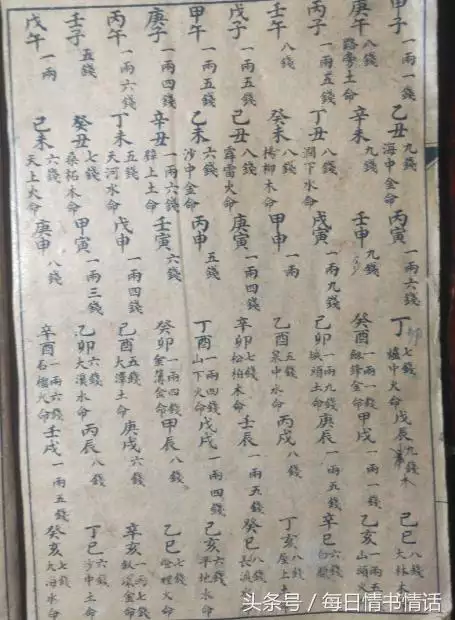 甲子 一兩一錢 乙丑 九錢 海中金命 丙寅 一兩六錢 丁卯 七錢 爐中火命 戊辰 九錢 木 己巳 八錢 大林木
庚午 八錢 路旁土命 辛未 九錢 壬申 九錢 癸酉 一兩一錢 劍鋒金命 甲戌 一兩一錢 乙亥 一兩五 山頭火
丙子 一兩五錢 丁丑 八錢 澗下水命 戊寅 一兩九錢 己卯 一兩九錢 城頭土命 庚辰 一兩五錢 辛巳 六錢 白
壬午 八錢 癸未 八錢 楊柳木命 甲申 一兩 乙酉 五錢 泉中水命 丙戌 八錢 丁亥 八錢 屋上土
戊子 一兩五錢 己丑 八錢 霹雷火命 庚寅 一兩四錢 辛卯 七錢 松柏木命 壬辰 一兩五錢 癸巳 八錢 長流
甲午 一兩五錢 乙未 六錢 沙中金命 丙申 五錢 丁酉 一兩四錢 山下火命 戊戌 一兩四錢 己亥 六錢 平地水命
庚子 一兩四錢 辛丑 一兩六錢 壁上土命 壬寅 六錢 癸卯 一兩四錢 金簿金命 甲辰 八錢 乙巳 七錢 燈裡火命
丙午 一兩六錢 丁未 五錢 天河水命 戊申 一兩四錢 己酉 五錢 大澤土命 庚戌 六錢 辛亥 一兩七錢 釵環金命
壬子 五錢 癸丑 七錢 桑柘木命 甲寅 一兩三錢 乙卯 六錢 大溪水命 丙辰 八錢 丁巳 六錢 沙中土命
戊午 一兩 己未 六錢 天上火命 庚申 八錢 辛酉 一兩六錢 石榴火命 壬戌 一兩五錢 癸亥 七錢 大海水命
头条号 / 每日情书情话